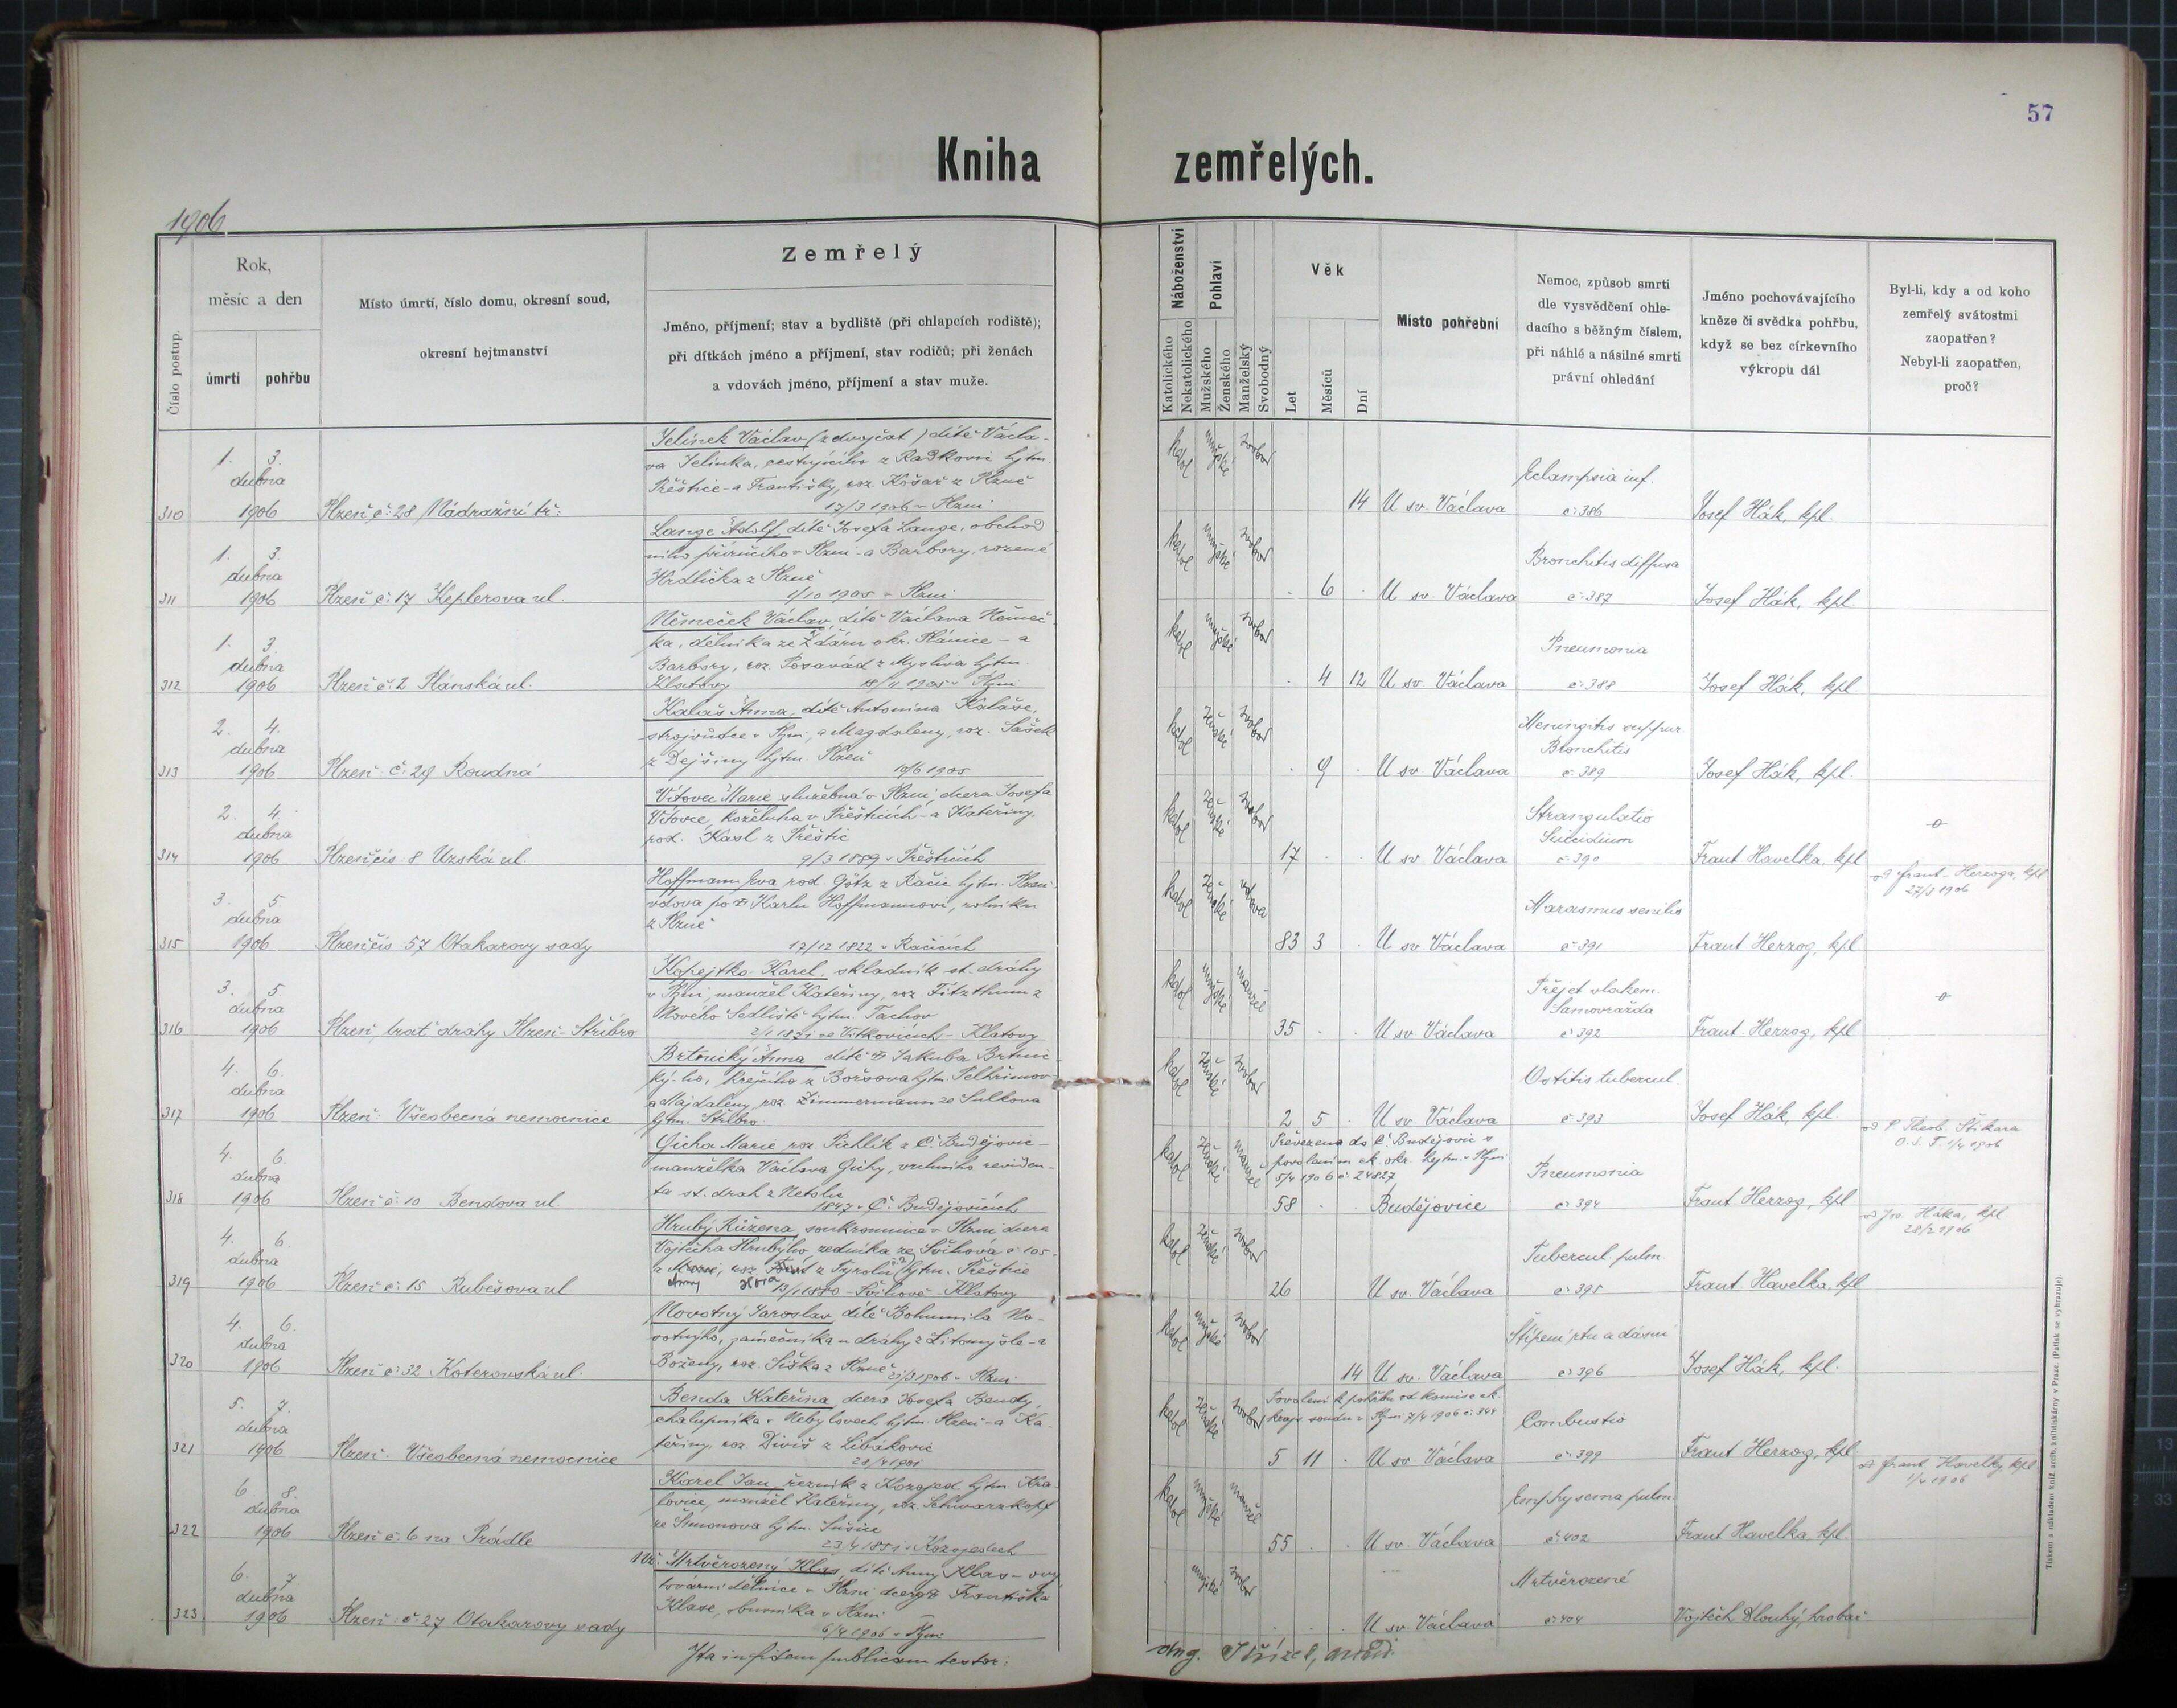 57
Kniha zemřelých.
1906
Číslo postup.
Rok,
měsíc a den
úmrtí
pohřbu
Místo úmrtí, číslo domu, okresní soud,
okresní hejtmanství
Zemřelý
Jméno, příjmení; stav a bydliště (při chlapcích rodiště);
při dítkách jméno a příjmení, stav rodičů; při ženách
a vdovách jméno, příjmení a stav muže.
Náboženství
Katolického
Nekatolického
Pohlaví
Mužského
Ženského
Manželský
Svobodný
Věk
Let
Měsíců
Dní
Místo pohřební
Nemoc, způsob smrti
dle vysvědčení ohle-
dacího s běžným číslem,
při náhlé a násilné smrti
právní ohledání
Jméno pochovávajícího
kněze či svědka pohřbu,
když se bez církevního
výkropu dál
Byl-li, kdy a od koho
zemřelý svátostmi
zaopatřen?
Nebyl-li zaopatřen,
proč?
310
1. 3.
dubna
1906
Plzeň č: 28 Nádražní tř:
Jelínek Václav (z dvojčat) dítě Václa-
va Jelínka, cestujícího z Radkovic hjtm.
Přeštice - a Františky, roz. Košař z Plzně
17/3 1906 v Plzni
katol mužské svobod
14 U sv. Václava
Eclampsia inf.
č: 386
Josef Hák, kpl.
311
1. 3.
dubna
1906
Plzeň č: 17 Keplerova ul.
Lange Adolf, dítě Josefa Lange, obchod
ního příručího v Plzni - a Barbory, rozené
Hrdlička z Plzně
1/10 1905 v Plzni
katol mužské svobod
6 U sv. Václava
Bronchitis diffusa
č: 387
Josef Hák, kpl
312
1. 3.
dubna
1906
Plzeň č: 2 Plánská ul.
Němeček Václav, dítě Václava Němeč-
ka, dělníka ze Ždáru okr. Plánice - a
Barbory, roz. Posavád z Myslíva hjtm.
Klatovy
katol mužské svobod
4 12 U sv. Václava
Pneumonia
č: 388
Josef Hák, kpl
313
2. 4.
dubna
1906
Plzeň č: 29 Roudná
Kalaš Anna, dítě Antonína Kalaše,
strojvůdce v Plzni, a Magdaleny, roz. Sašek
z Dejšiny hjtm. Plzeň
katol ženské svobod
9 U sv. Václava
Meningitis suppur
Bronchitis
č: 389
Josef Hák, kpl.
314
2. 4.
dubna
1906
Plzeň čís: 8 Úzská ul.
Vítovec Marie služebná v Plzni, dcera Josefa
Vítovce, koželuha v Přešticích - a Kateřiny,
rod. Kasl z Přeštic
9/3 1889 v Přešticích
katol ženské svobod
17 U sv. Václava
Strangulatio
Suicidium
č: 390
Frant Havelka, kpl
315
3. 5.
dubna
1906
Plzeň čís: 57 Otakarovy sady
Hoffmann Eva rod. Götz z Račic hjtm. Plzeň
vdova po † Karlu Hoffmannovi, rolníku
z Plzně
17/12 1822 v Račicích
katol ženské vdova
83 3 U sv. Václava
Marasmus senilis
č: 391
Frant Herzog, kpl
od Frant. Herzoga, kpl
27/3 1906
316
3. 5
dubna
1906
Plzeň, trať dráhy Plzeň - Stříbro
Kopejtko Karel, skladník st. dráhy
v Plzni, manžel Kateřiny, roz. Fitzthum z
Nového Sedliště hjtm. Tachov
2/1 1871 ve Vítkovicích - Klatovy
katol mužské manžel
35 U sv. Václava
Přejet vlakem.
Samovražda
č: 392
Frant Herzog, kpl
317
4. 6.
dubna
1906
Plzeň: Všeobecná nemocnice
Brtnický Anna dítě † Jakuba Brtnic-
ký-ho, krejčího z Bořšova hjtm. Pelhřimov -
a Majdaleny, roz. Zimmermann ze Sulkova
hjtm. Stříbro
katol ženské svobod
2 5 U sv. Václava
Ostitis tubercul.
č: 393
Josef Hák, kpl.
318
4. 6.
dubna
1906
Plzeň č: 10 Bendova ul.
Gicha Marie, roz. Pichlík z Č. Budějovic -
manželka Václava Gichy, vrchního reviden-
ta st. drah z Netolic
1847 v Č. Budějovicích
katol ženské manžel
Převezena do Č. Budějovic s
povolením ck. okr. hejtm. v Plzni
5/4 1906 č: 24827
58 Budějovice
Pneumonia
č: 394
Frant Herzog, kpl
od P. Theob. Štikara
O. S. F. 1/4 1906
319
4. 6.
dubna
1906
Plzeň č: 15 Rubešova ul
Hrubý Růžena, soukromnice v Plzni dcera
Vojtěcha Hrubýho, zedníka ze Švihova č: 105 -
hjtm. Přeštice
Anny
Švihově - Klatovy
katol ženské svobod
26 U sv. Václava
Tubercul pulm.
č: 395
Frant Havelka, kpl
od Jos. Háka, kpl
28/2 1906
320
4. 6.
dubna
1906
Plzeň č: 32 Koterovská ul.
Novotný Jaroslav, dítě Bohumila No-
votnýho, zámečníka u dráhy z Litomyšle - a
Boženy, roz. Šiška z Plzně 21/3 1906 v Plzni
katol mužské svobod
14 U sv. Václava
Štípení rtu a dásní
č: 396
Josef Hák, kpl.
321
5. 7.
dubna
1906
Plzeň. Všeobecná nemocnice
Benda Kateřina, dcera Josefa Bendy,
chalupníka v Nebylovech hjtm. Plzeň - a Ka-
teřiny, roz. Diviš z Libákovic
katol ženské svobod
Povolení k pohřbu od komise ck.
kraj. soudu v Plzni 7/4 1906 č: 344
5 11 U sv. Václava
Combustio
č: 399
Frant. Herzog, kpl.
322
6. 8.
dubna
1906
Plzeň č: 6 na Prádle
Karel Jan, řezník z Kozojed hjtm. Kra-
lovice, manžel Kateřiny, roz. Schwarzkopf
ze Simonova hjtm. Sušice
23/4 1851 v Kozojedech
katol mužské manžel
55 U sv. Václava
Emphysema pulm.
č: 402
Frant Havelka, kpl.
od Frant. Havelky kpl
1/4 1906
323
6. 7
dubna
1906
Plzeň: č: 27 Otakarovy sady
Mrtvěrozený Klas, dítě Anny Klas-ovy
tovární dělnice v Plzni, dcery † Františka
Klase, obuvníka v Plzni
6/4 1906 v Plzni
mužské svobod
U sv. Václava
Mrtvěrozené
č: 404
Vojtěch Dlouhý, hrobař
Ita in fidem publicam testor:
Tiskem a nákladem kníž. arcib. knihtiskárny v Praze. (Patisk se vyhrazuje).